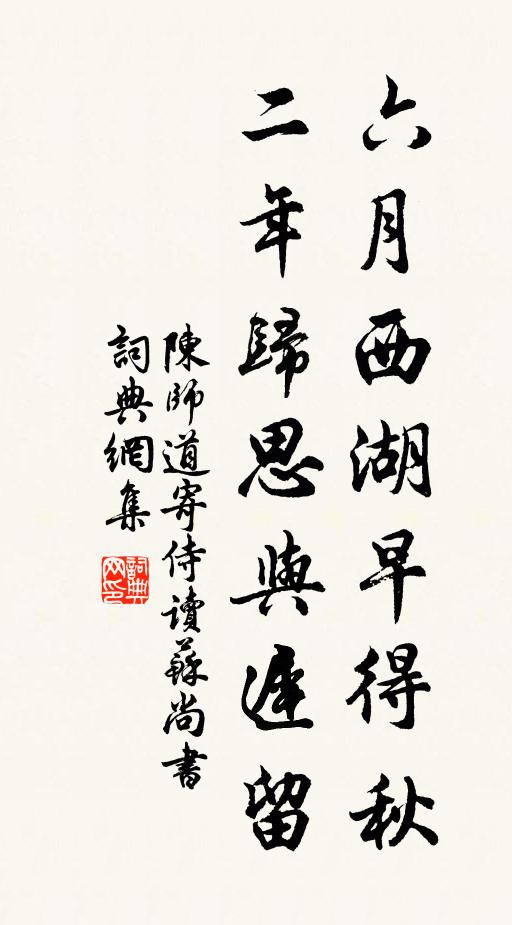 六月西湖早得秋
二年歸思與遲留
陳師道寄侍讀蘇尚書
詞典網集
詞典网印